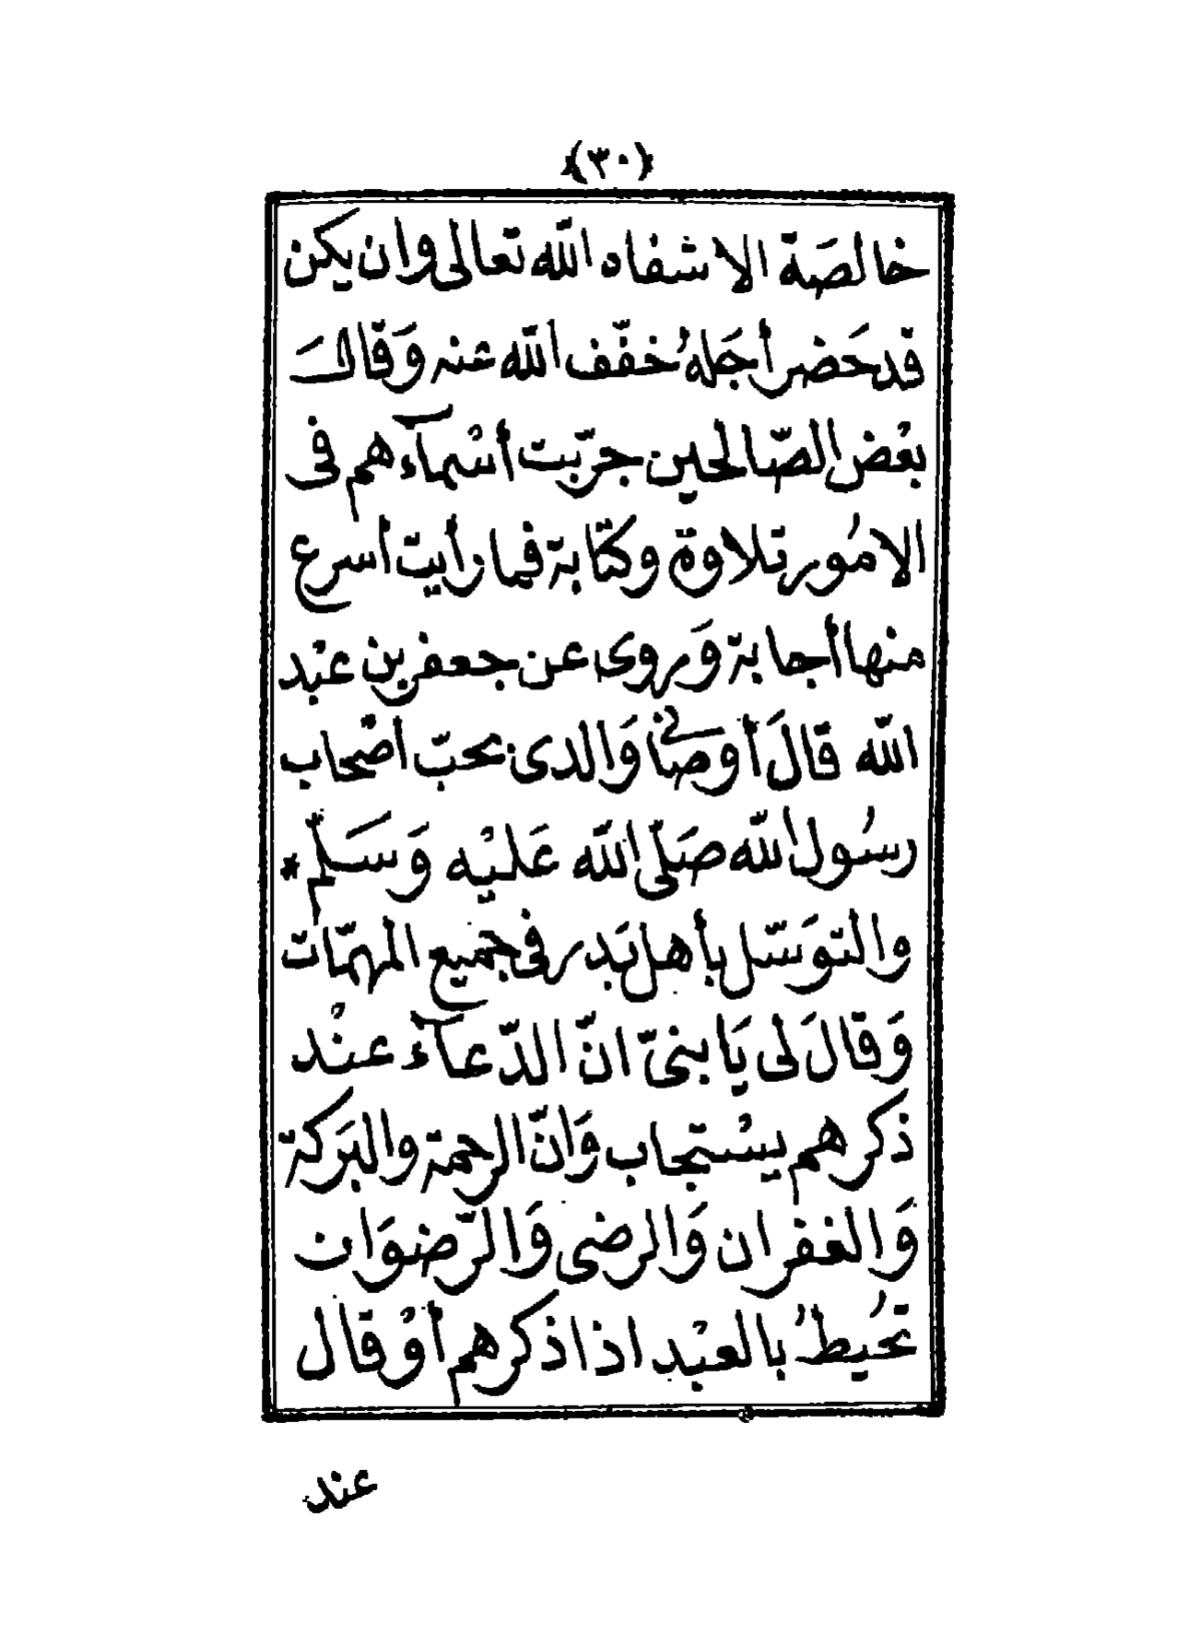 ﴿٣٠﴾
خالصَة الا شفاه الله تعالى وان يكن
قد حَضر أجَلهُ خفّف الله عنه وَقالَ
بعْض الصّالحين جرّبت أسْمآءهم فى
الامُور تلاوة وكتابة فما رأيت أسرع
منها أجابة وَروى عن جعفر بن عبْد
الله قالَ أوصَانى وَالدى بحبّ أصْحاب
رسُول الله صَلّى الله عَليْه وَسَلّم *
والتوَسّل بأهل بَدر فى جميع المهمّات
وَقالَ لى يَا بنىّ انّ الدّعآء عنْد
ذكرهم يسْتجاب وَانّ الرحمة والبَركة
وَالغفران وَالرضى وَالرّضوَان
تحُيطُ بالعبْد اذا ذكرهم أوْ قال
عند